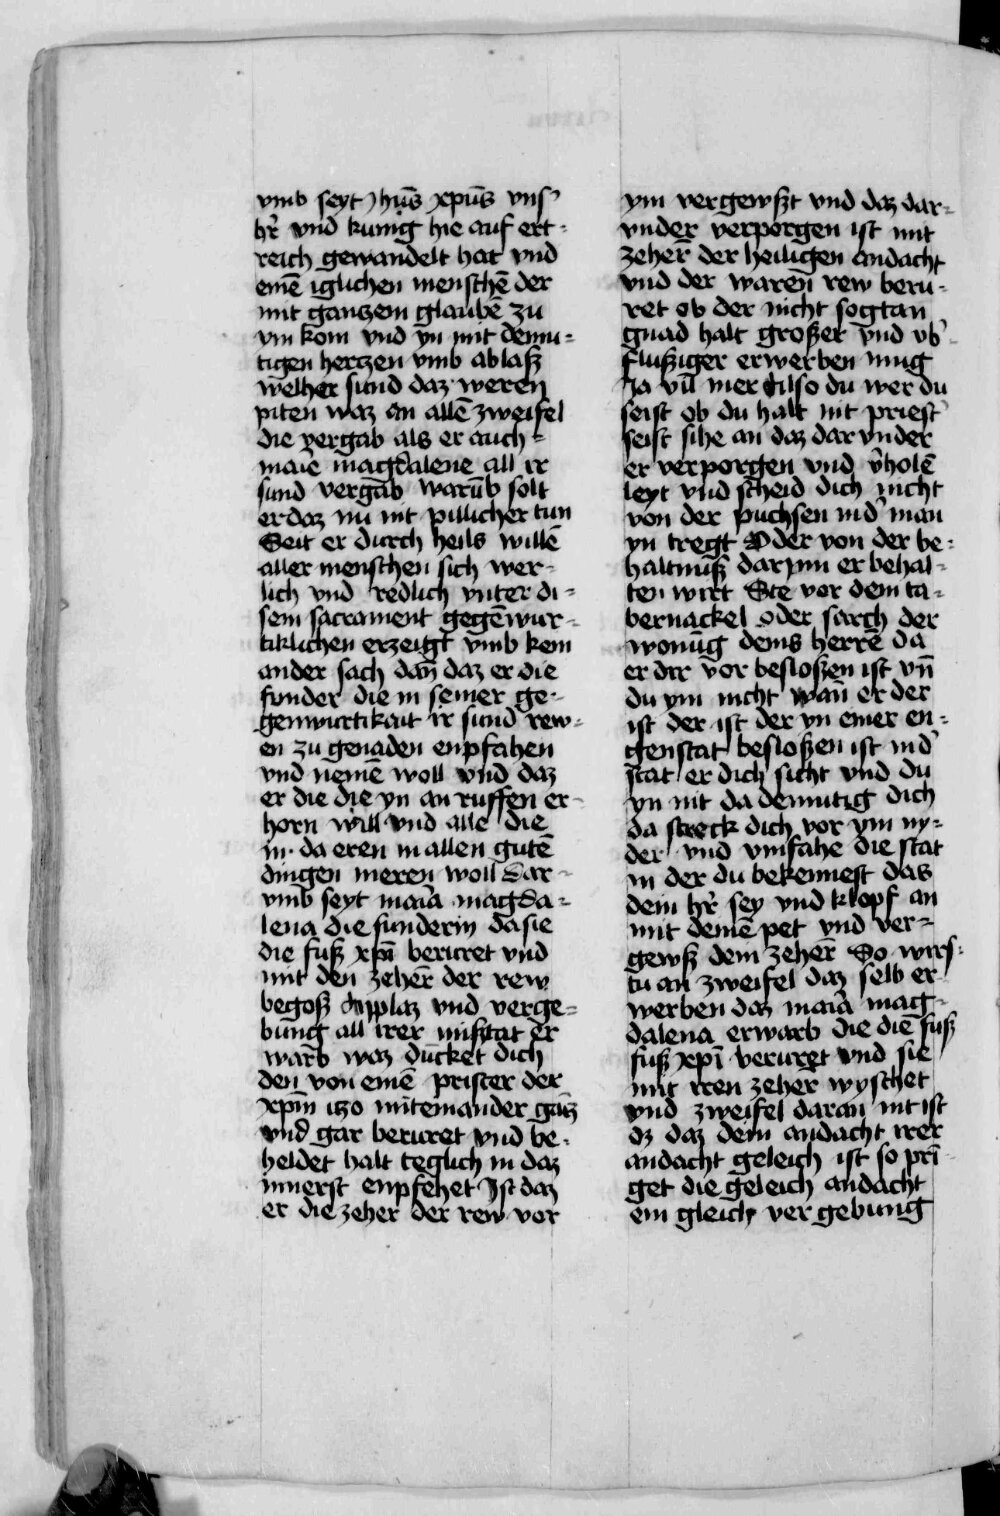 vmb seyt Jhũs xpũs vnsʾ
hr̃ vnd kunig hie auf ert-
reich gewandelt hat vnd
einē iglichen menschē der
mit ganczem glaubē zu
ym kom vnd yn mit demu-
tigen herczen vmb ablaß
welher sund daz weren
piten waz an allē zweifel
die vergab als er auch
maīe magdalene all ir
sund vergab warūb solt
er daz nu nit pillicher tun
Seit er durch heils willē
aller menschen sich wer-
lich vnd redlich vnter di-
sem sacrament gegēwur-
tiklichen erzeigt vmb kein
ander sach dan̄ daz er die
sunder die in seiner ge-
genwurtikait ir sund rew-
en zu genaden enpfahen
vnd nemē woll vnd daz
er die die yn an ruffen er-
horn will vnd alle die
in da eren in allen gutē
dingen meren woll Dar-
vmb seyt maīa magda-
lena die sunderin da sie
die fuß xpī beruret vnd
mit den zeherē der rew
begoß applaz vnd verge-
bung all irer missetat er
warb waz dūcket dich
den von einē prister der
xpm̄ iczo miteinander gācz
vnd gar beruret vnd be-
heldet halt teglich in daz
innerst enpfehet Ist daz
er die zeher der rew vor
ym vergewßt vnd daz dar-
vnder verporgen ist mit
zeherē der heiligen andacht
vnd der waren̄ rew beru-
ret ob der nicht sogtan
gnad halt großer vnd vbʾ
flußiger erwerben mug
Ja vil mer Also du wer du
seist ob du halt nit priestʾ
seist sihe an daz dar vnder
er verporgen vnd v̄holē
leyt vnd scheid dich nicht
von der puchsen in dʾ man
yn tregt Oder von der be-
haltnuß dar ynn er behal-
ten wirt Ste vor dem ta-
bernackel oder sarch der
wonūg deins herrē da
er dir vor besloßen ist vn̄
du ym nicht wan̄ er der
ist der ist der yn einer en-
gtenstat besloßen ist in dʾ
stat er dich sicht vnd du
yn nit da demutig dich
da streck dich vor ym ny-
der vnd vmfahe die stat
in der du bekennest das
dein hr̃ sey vnd klopf an
mit deinē pet vnd ver-
gewß dein zeherē So wirs-
tu an zweifel daz selb er-
werben daz maīa mag-
dalena erwarb die diē fuß
fuß xpī veruret vnd sie
mit iren zeher wyschet
vnd zweifel daran nit ist
dz daz dein andacht irer
andacht geleich ist so prī-
get die geleich andacht
ein gleich vergebung